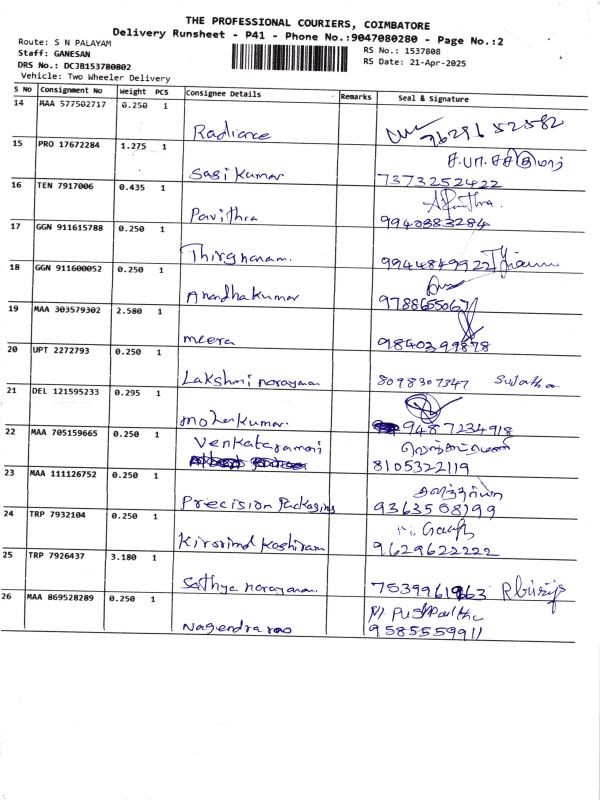 THE PROFESSIONAL COURIERS, COIMBATORE
Delivery Runsheet - P41 - Phone No.:9047080280 - Page No.:2
Route: S N PALAYAM
Staff: GANESAN
DRS No.: DCJB153780802
Vehicle: Two Wheeler Delivery
RS No.: 1537808
RS Date: 21-Apr-2025
S No Consignment No Weight PCS Consignee Details Remarks Seal & Signature
14 MAA 577502717 0.250 1
Radiance 7629652582
15 PRO 17672284 1.275 1
Sasi kumar 7373252422
16 TEN 7917006 0.435 1
Pavithra 9940383284
17 GGN 911615788 0.250 1
Thirgnanam. 9944849922
18 GGN 911600052 0.250 1
Anandhakumar 9788655067
19 MAA 303579302 2.580 1
meera 9840399878
20 UPT 2272793 0.250 1
Lakshmi narayanan 8098307347 Sujatha
21 DEL 121595233 0.295 1
mohenkumar. 9487234918
22 MAA 705159665 0.250 1
Venkataramani
8105322119
23 MAA 111126752 0.250 1
Precision Packaging 9363508199
24 TRP 7932104 0.250 1
Kirorimd Kashiram 9629622222
25 TRP 7926437 3.180 1
Sathya narayanan. 7539961963
26 MAA 869528289 0.250 1
Nagendra rao 9585559911